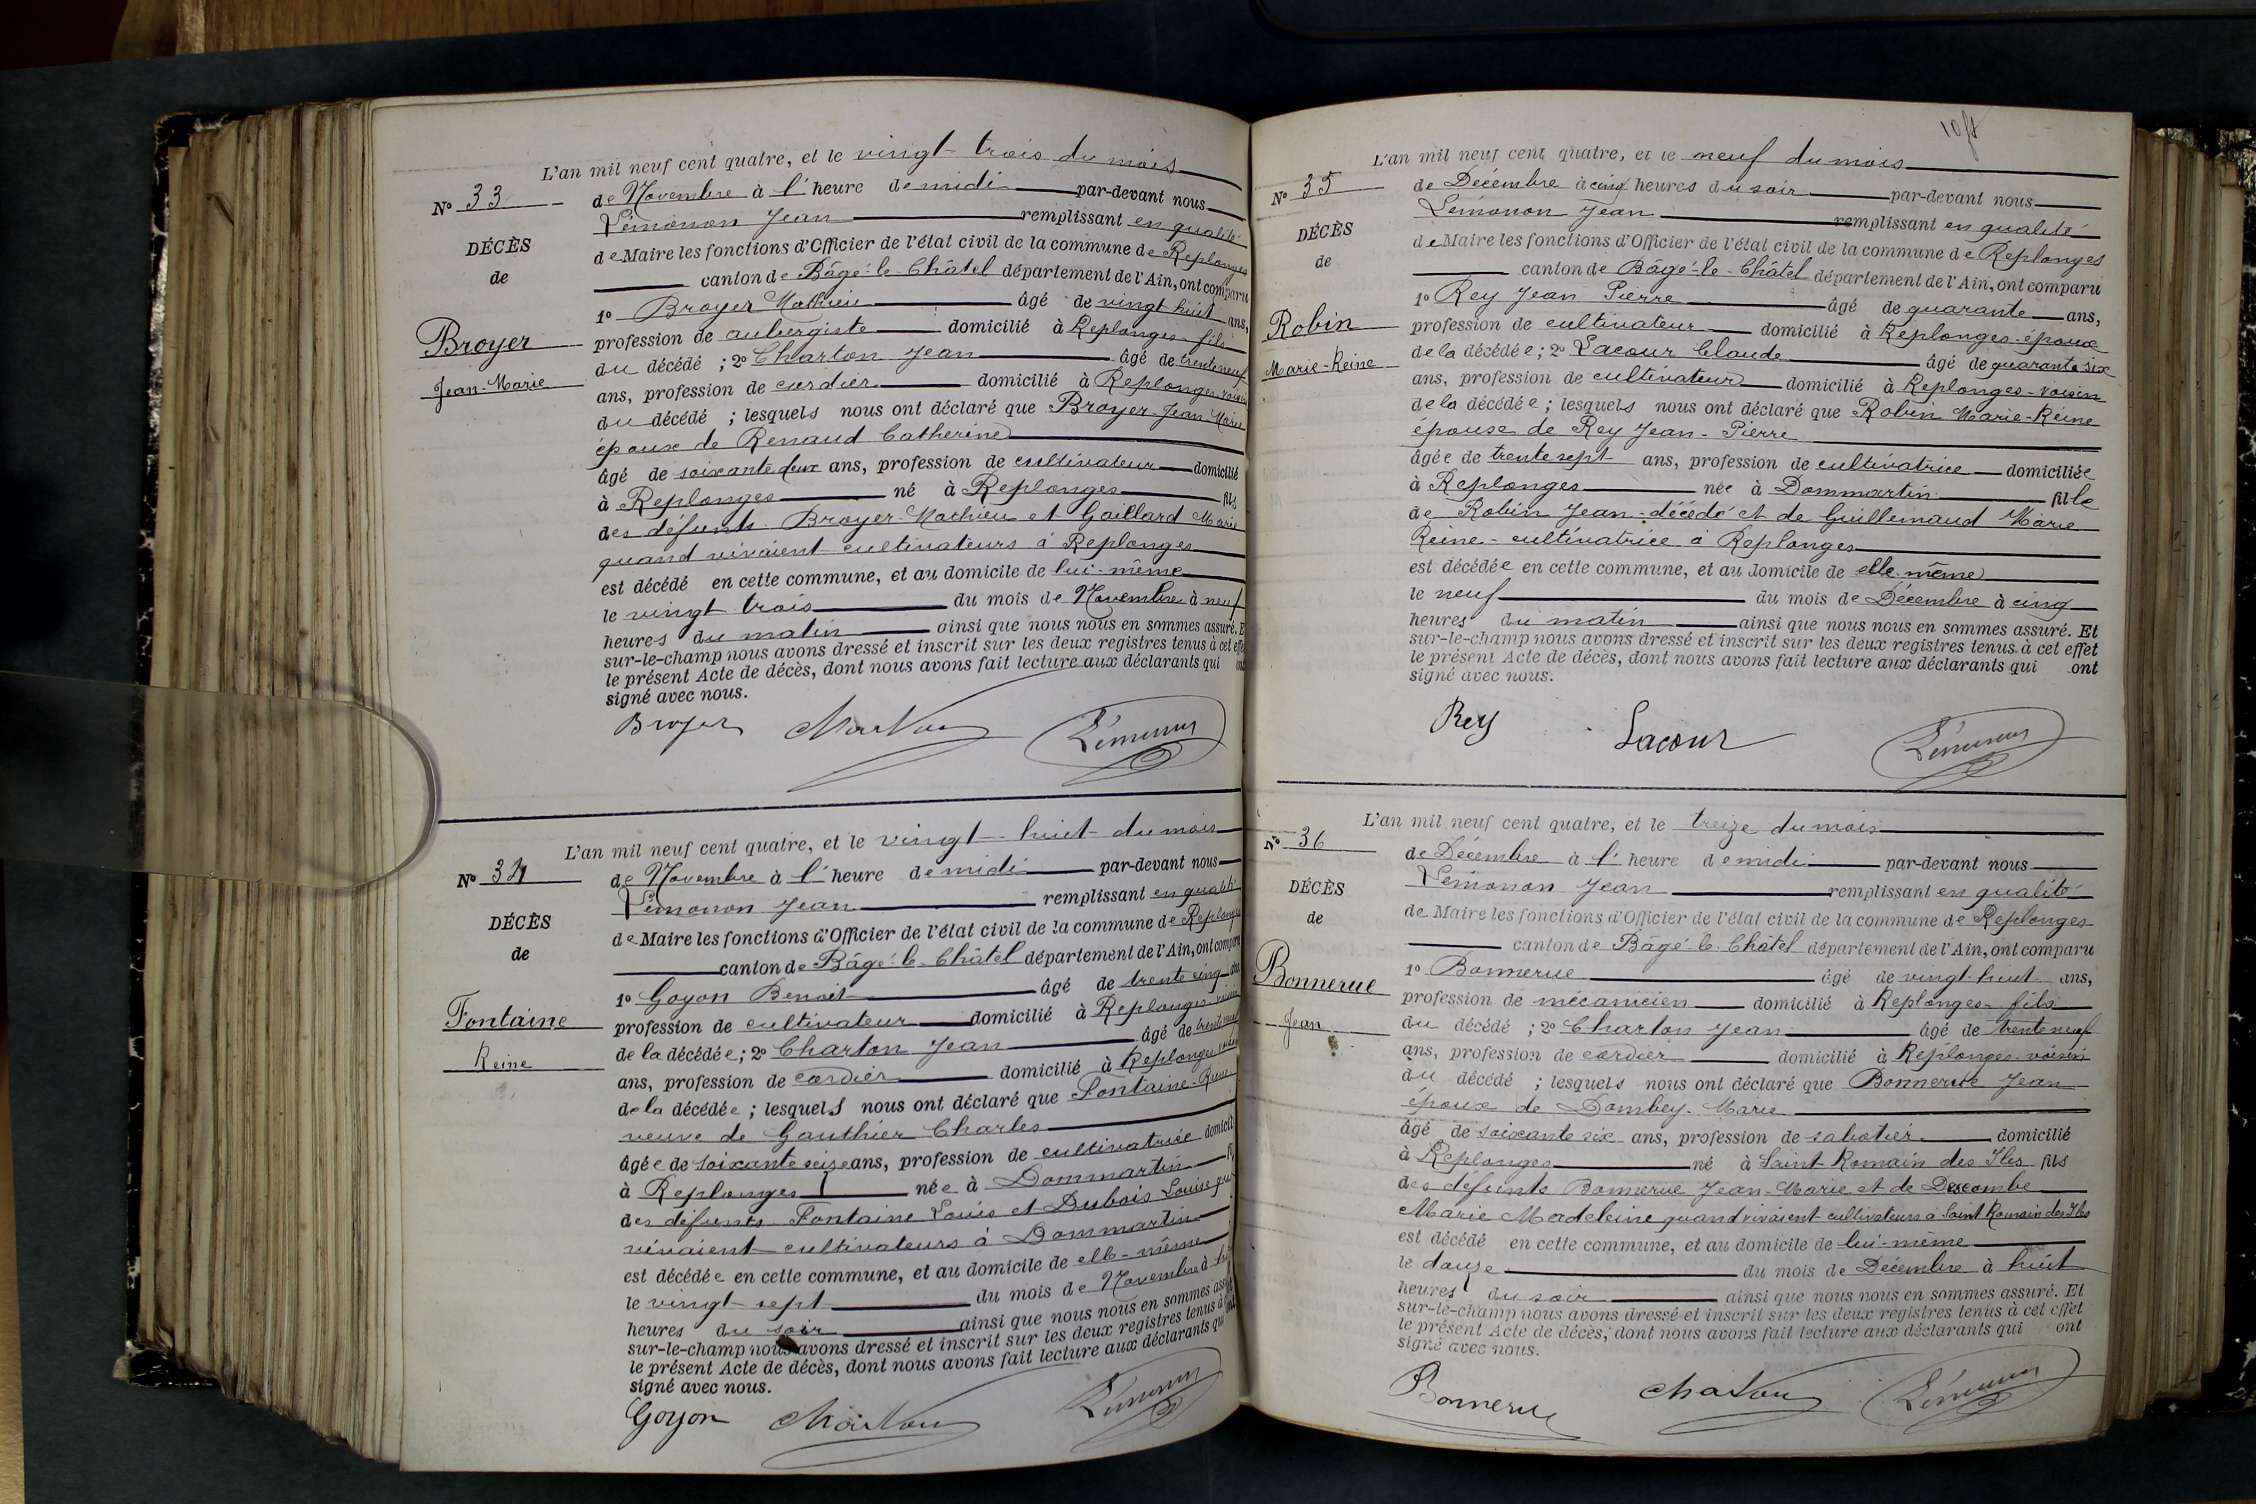 L'an mil neuf cent quatre, et le vingt-trois du mois
N° 33
de Novembre à l'heure de midi par-devant nous
Lémonon Jean remplissant en qualité
DÉCÈS
de Maire les fonctions d'Officier de l'état civil de la commune de Replonges
de
canton de Bâgé-le-Châtel département de l'Ain, ont comparu
1° Broyer Mathieu âgé de vingt huit ans,
Broyer
profession de aubergiste domicilié à Replonges - fils
du décédé ; 2° Charton Jean âgé de trente neuf
Jean-Marie
ans, profession de cordier domicilié à Replonges voisin
du décédé ; lesquels nous ont déclaré que Broyer Jean Marie
époux de Renaud Catherine
âgé de soixante deux ans, profession de cultivateur domicilié
à Replonges né à Replonges fils
des défunts Broyer Mathieu et Gaillard Marie
quand vivaient cultivateurs à Replonges
est décédé en cette commune, et au domicile de lui-même
le vingt trois du mois de Novembre à neuf
heures du matin ainsi que nous nous en sommes assuré. E
sur-le-champ nous avons dressé et inscrit sur les deux registres tenus à cet effe
le présent Acte de décès, dont nous avons fait lecture aux déclarants qui
signé avec nous.
Broyer Charton Lémonon
L'an mil neuf cent quatre, et le vingt-huit du mois
N° 34
de Novembre à l'heure de midi par-devant nous
Lémonon Jean remplissant en qualité
DÉCÈS
de Maire les fonctions d'Officier de l'état civil de la commune de Replonges
de
canton de Bâgé-le-Châtel département de l'Ain, ont comparu
1° Goyon Benoit âgé de trente cinq ans
Fontaine
profession de cultivateur domicilié à Replonges voisin
de la décédée ; 2° Charton Jean âgé de trente neuf
Reine
ans, profession de cordier domicilié à Replonges voisin
de la décédée ; lesquels nous ont déclaré que Fontaine Reine
veuve de Gauthier Charles
âgée de soixante seize ans, profession de cultivatrice domicili
à Replonges née à Dommartin fi
des défunts Fontaine Louis et Dubois Louise qu
vivaient cultivateurs à Dommartin
est décédée en cette commune, et au domicile de elle-même
le vingt-sept du mois de Novembre à
heures du soir ainsi que nous nous en sommes ass
sur-le-champ nous avons dressé et inscrit sur les deux registres tenus à
le présent Acte de décès, dont nous avons fait lecture aux déclarants qui
signé avec nous.
Goyon Charton Lémonon
L'an mil neuf cent quatre, et le neuf du mois
N° 35
de Décembre à cinq heures du soir par-devant nous
Lémonon Jean remplissant en qualité
DÉCÈS
de Maire les fonctions d'Officier de l'état civil de la commune de Replonges
de
canton de Bâgé-le-Châtel département de l'Ain, ont comparu
1° Rey Jean Pierre âgé de quarante ans,
Robin
profession de cultivateur domicilié à Replonges - époux
de la décédée ; 2° Lacour Claude âgé de quarante six
Marie-Reine
ans, profession de cultivateur domicilié à Replonges - voisin
de la décédée ; lesquels nous ont déclaré que Robin Marie-Reine
épouse de Rey Jean-Pierre
âgée de trente sept ans, profession de cultivatrice domiciliée
à Replonges née à Dommartin fille
de Robin Jean - décédé et de Guillemaud Marie
Reine - cultivatrice à Replonges
est décédée en cette commune, et au domicile de elle-même
le neuf du mois de Décembre à cinq
heures du matin ainsi que nous nous en sommes assuré. Et
sur-le-champ nous avons dressé et inscrit sur les deux registres tenus à cet effet
le présent Acte de décès, dont nous avons fait lecture aux déclarants qui ont
signé avec nous.
Rey Lacour Lémonon
L'an mil neuf cent quatre, et le treize du mois
N° 36
de Décembre à l'heure de midi par-devant nous
Lémonon Jean remplissant en qualité
DÉCÈS
de Maire les fonctions d'Officier de l'état civil de la commune de Replonges
de
canton de Bâgé-le-Châtel département de l'Ain, ont comparu
1° Bonnerue âgé de vingt-huit ans,
Bonnerue
profession de mécanicien domicilié à Replonges - fils
du décédé ; 2° Charton Jean âgé de trente neuf
Jean
ans, profession de cordier domicilié à Replonges - voisin
du décédé ; lesquels nous ont déclaré que Bonnerue Jean
époux de Dombey - Marie
âgé de soixante six ans, profession de sabotier domicilié
à Replonges né à Saint Romain des Iles fils
des défunts Bonnerue Jean-Marie et de Descombe
Marie Madeleine quand vivaient cultivateurs à Saint Romain des Iles
est décédé en cette commune, et au domicile de lui-même
le douze du mois de Décembre à huit
heures du soir ainsi que nous nous en sommes assuré. Et
sur-le-champ nous avons dressé et inscrit sur les deux registres tenus à cet effet
le présent Acte de décès, dont nous avons fait lecture aux déclarants qui ont
signé avec nous.
Bonnerue Charton Lémonon